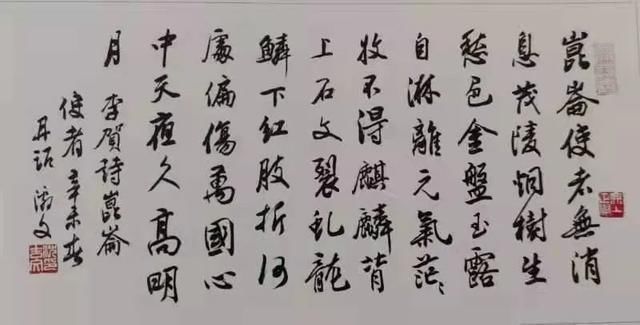 崑崙使者無消
息茂陵烟樹生
愁色金盤玉露
自淋離元氣茫〻
收不得麒麟背
上石文裂虬龍
鱗下紅肢折何
處偏傷萬國心
中天夜久高明
月
李賀詩崑崙
使者辛未春